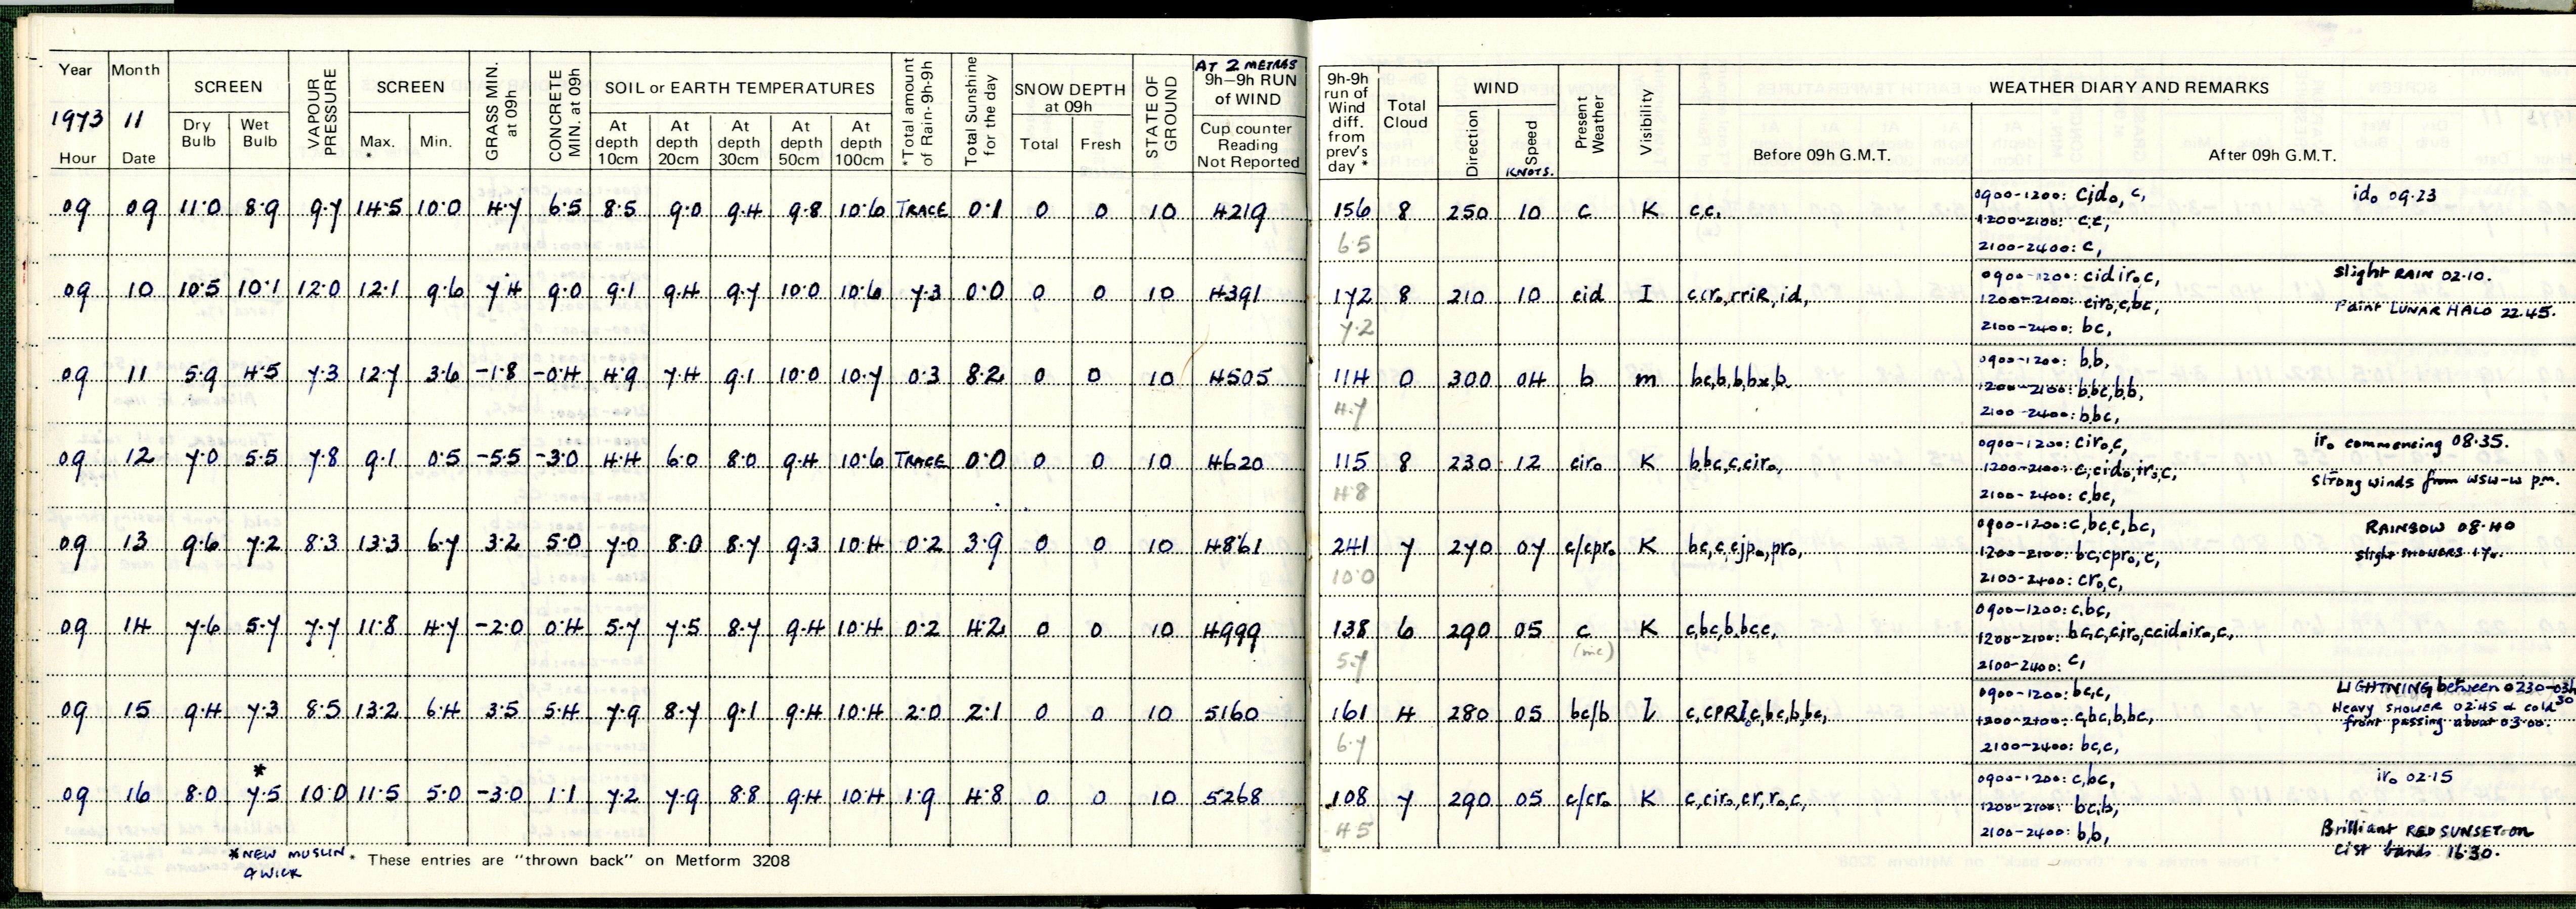 Year Month SCREEN VAPOUR PRESSURE SCREEN GRASS MIN. at 09h CONCRETE MIN. at 09h SOIL or EARTH TEMPERATURES *Total amount of Rain-9h-9h Total Sunshine for the day SNOW DEPTH at 09h STATE OF GROUND AT 2 METRES 9h-9h RUN of WIND
1973 11
Hour Date Dry Bulb Wet Bulb Max. * Min. At depth 10cm At depth 20cm At depth 30cm At depth 50cm At depth 100cm Total Fresh Cup counter Reading Not Reported
09 09 11.0 8.9 9.7 14.5 10.0 4.7 6.5 8.5 9.0 9.4 9.8 10.6 TRACE 0.1 0 0 10 4219
09 10 10.5 10.1 12.0 12.1 9.6 7.4 9.0 9.1 9.4 9.7 10.0 10.6 7.3 0.0 0 0 10 4391
09 11 5.9 4.5 7.3 12.7 3.6 -1.8 -0.4 4.9 7.4 9.1 10.0 10.7 0.3 8.2 0 0 10 4505
09 12 7.0 5.5 7.8 9.1 0.5 -5.5 -3.0 4.4 6.0 8.0 9.4 10.6 TRACE 0.0 0 0 10 4620
09 13 9.6 7.2 8.3 13.3 6.7 3.2 5.0 7.0 8.0 8.7 9.3 10.4 0.2 3.9 0 0 10 4861
09 14 7.6 5.7 7.7 11.8 4.7 -2.0 0.4 5.7 7.5 8.7 9.4 10.4 0.2 4.2 0 0 10 4999
09 15 9.4 7.3 8.5 13.2 6.4 3.5 5.4 7.9 8.7 9.1 9.4 10.4 2.0 2.1 0 0 10 5160
*
09 16 8.0 7.5 10.0 11.5 5.0 -3.0 1.1 7.2 7.9 8.8 9.4 10.4 1.9 4.8 0 0 10 5268
*NEW MUSLIN & WICK
* These entries are "thrown back" on Metform 3208
9h-9h run of Wind diff. from prev's day * Total Cloud WIND Present Weather Visibility WEATHER DIARY AND REMARKS
Direction Speed KNOTS. Before 09h G.M.T. After 09h G.M.T.
0900-1200: cido, c, ido 09.23
156 8 250 10 c K c.c.
1200-2100: c.c,
6.5
2100-2400: c,
0900-1200: cid iro, c, Slight RAIN 02.10.
172 8 210 10 cid I c,iro, rriR, id,
1200-2100: ciro, c, bc, Faint LUNAR HALO 22.45.
7.2
2100-2400: bc,
0900-1200: b,b,
114 0 300 04 b m bc,b,b,bx,b
1200-2100: b,bc,b,b,
4.7
2100-2400: b,bc,
0900-1200: ciro, c, iro commencing 08.35.
115 8 230 12 ciro K b,bc,c,ciro,
1200-2100: c,cido,iro,c, Strong winds from WSW-W pm.
4.8
2100-2400: c,bc,
0900-1200: c,bc,c,bc, RAINBOW 08.40
241 7 270 07 c/cpro K bc,c,cjpo,pro,
1200-2100: bc,cpro,c, slight SHOWERS
10.0
2100-2400: cro,c,
0900-1200: c,bc,
138 6 290 05 c K c,bc,b,bc,c,
1200-2100: bc,c,ciro,ccido,iro,c,
5.7
2100-2400: c,
0900-1200: bc,c, LIGHTNING between 0230-0330
161 4 280 05 bc/b I c,CPR c,bc,b,bc, Heavy SHOWER 02.45 & cold
1200-2100: c,bc,b,bc, front passing about 03.00.
6.7
2100-2400: bc,c,
0900-1200: c,bc, iro 02.15
108 7 290 05 c/cro K c,ciro,cr,ro,c,
1200-2100: bc,b,
4.5
2100-2400: b,b, Brilliant RED SUNSET on
bands 16.30.